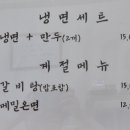 냉면세트
냉면 + 만두(2개) 15,
계절메뉴
갈비탕(밥포함) 15,
메밀온면 12,